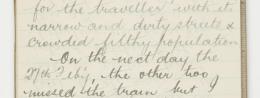 for the traveller with it
narrow and dirty streets &
crowded filthy population
On the next day the
27th Feby, the other too
missed the train but I